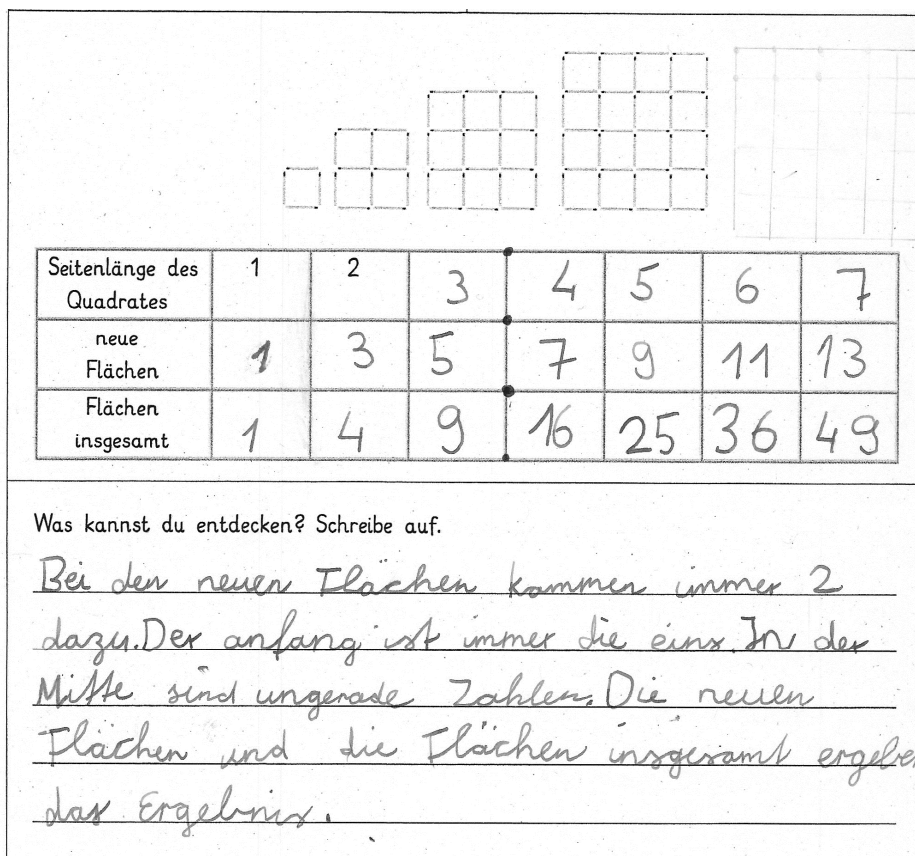 Seitenlänge des Quadrates 1 2 3 4 5 6 7
neue Flächen 1 3 5 7 9 11 13
Flächen insgesamt 1 4 9 16 25 36 49
Was kannst du entdecken? Schreibe auf.
Bei den neuen Flächen kommen immer 2
dazu. Der anfang ist immer die eins. In der
Mitte sind ungerade Zahlen. Die neuen
Flächen und die Flächen insgesamt ergeben
das Ergebnis.